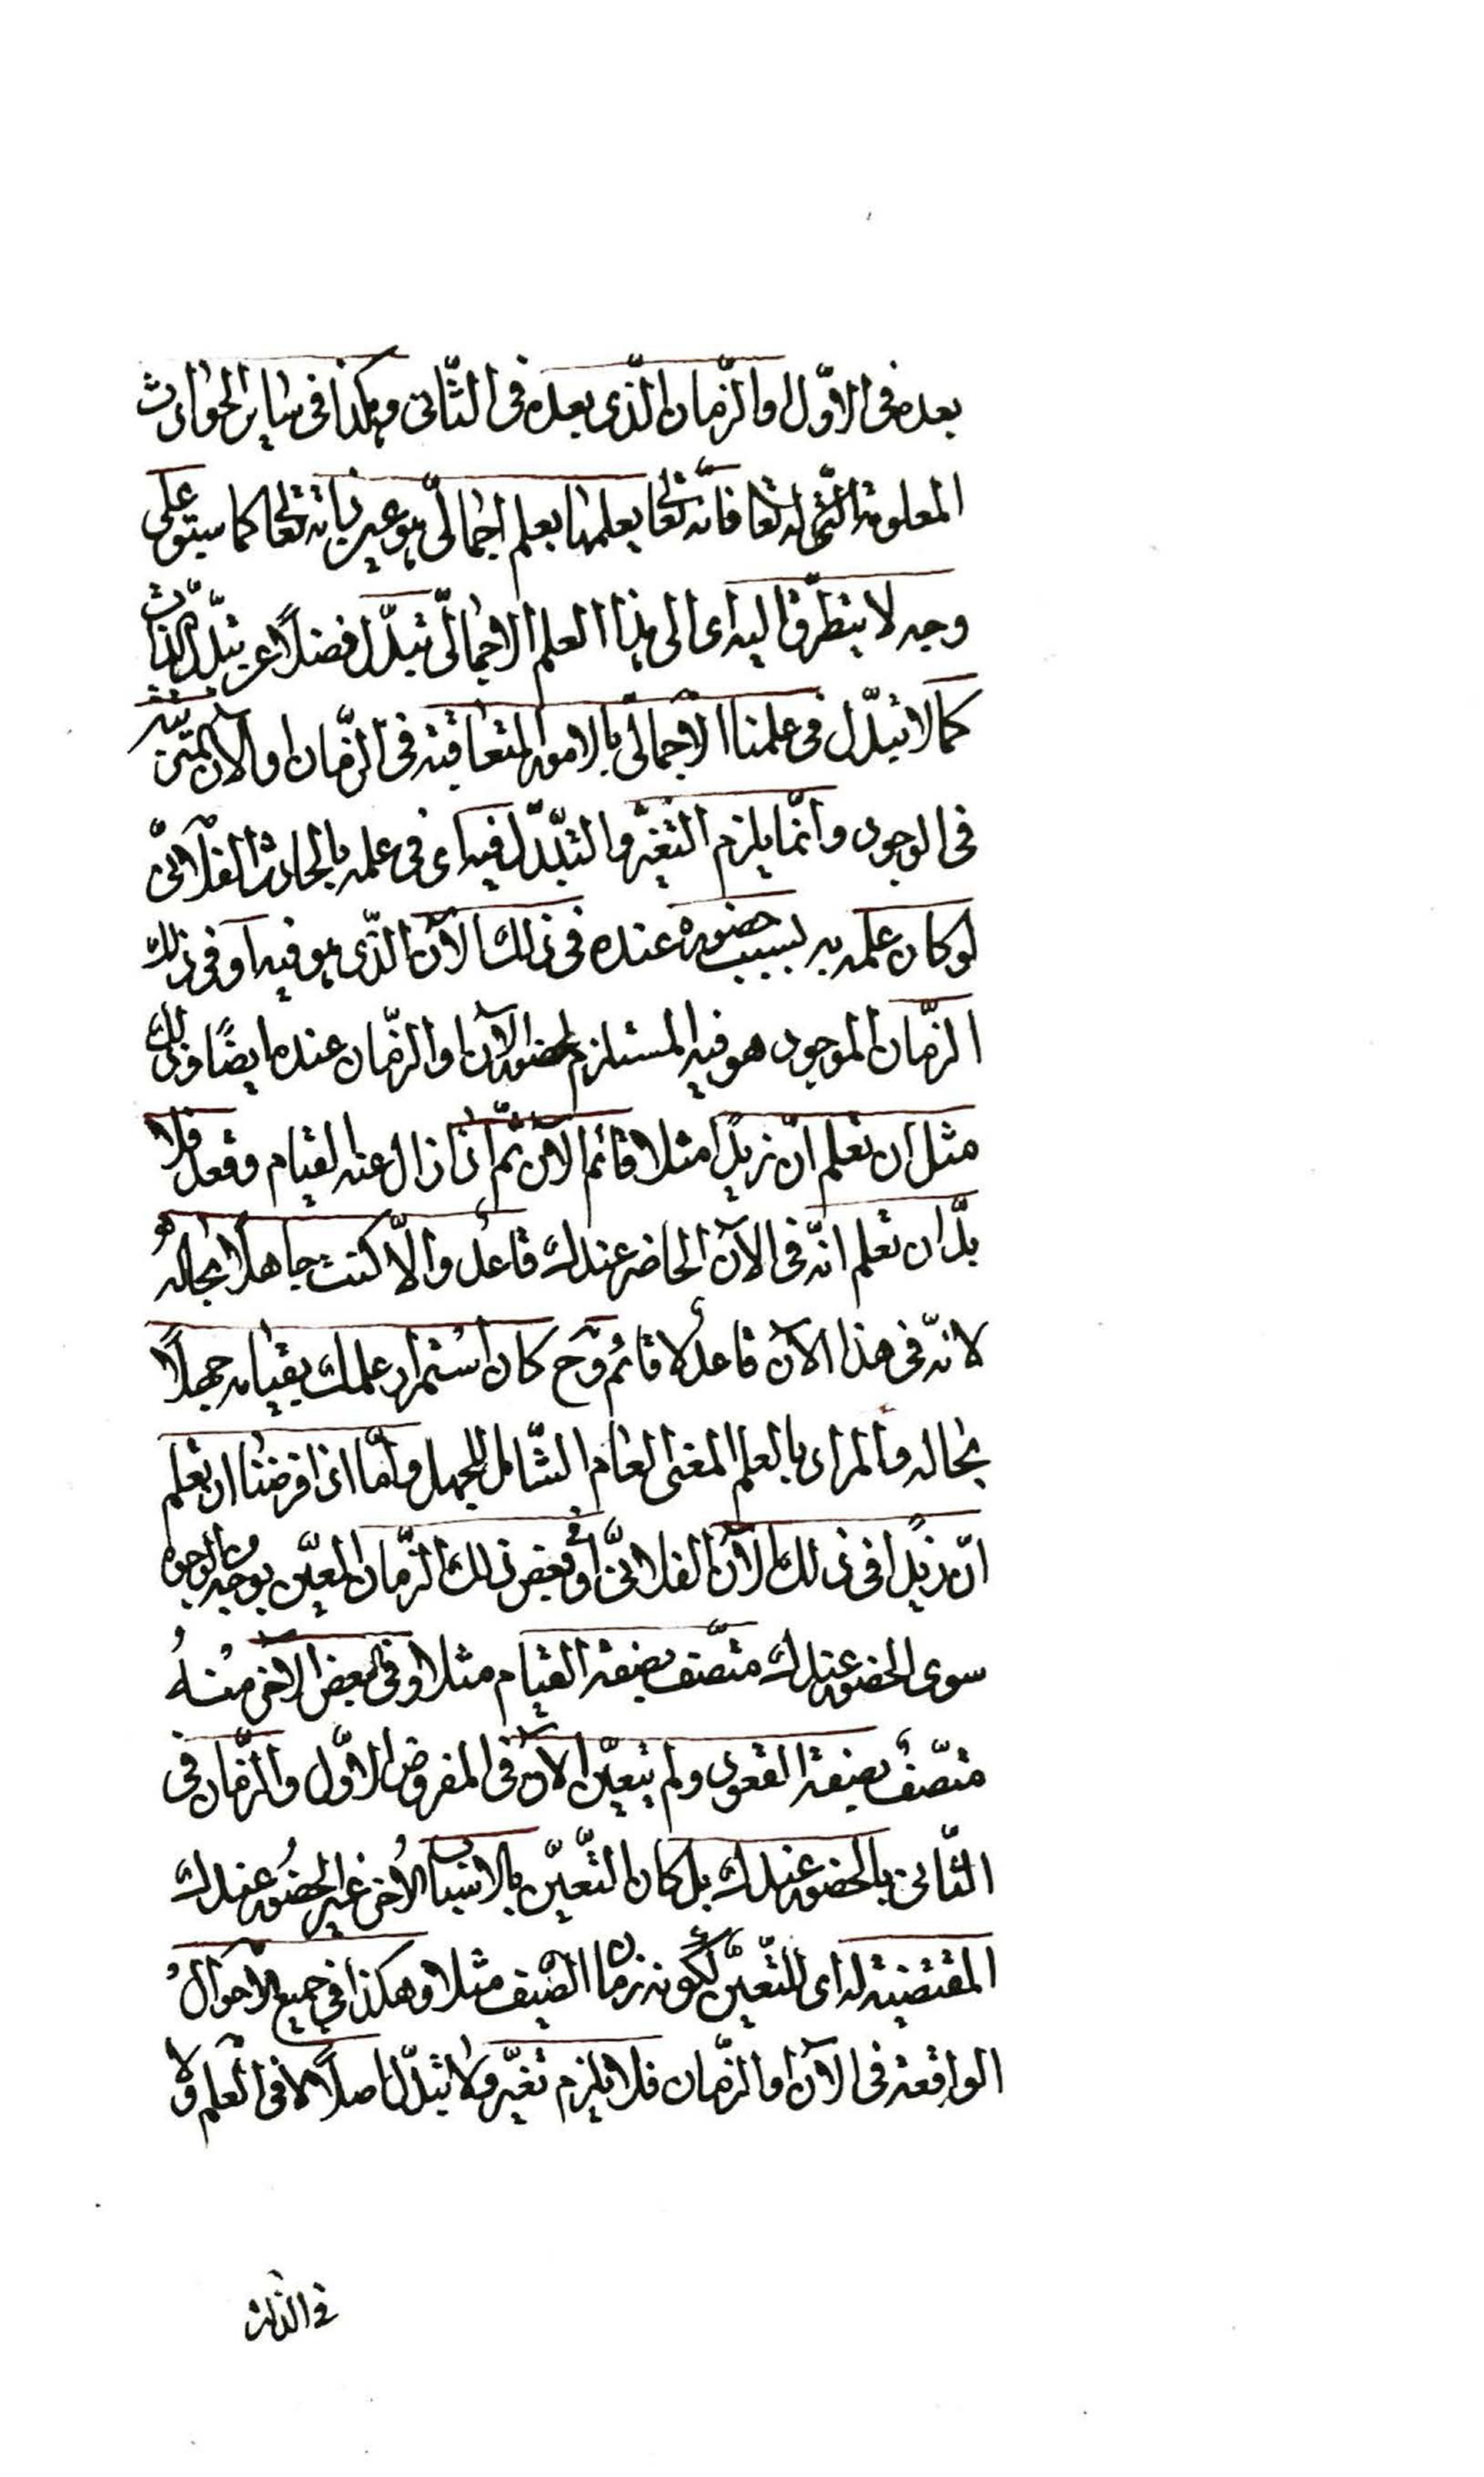 بعده فى الاوّل والزّمان الّذى بعده فى الثّانى وهكذا فى ساير الحوادث
المعلومة الّتى له تعا فانّه تعا يعلمها بعلم اجمالىّ هو عين ذاته تعا كما سيتوعلى
وجه لا يتطرّق اليه اى الى هذا العلم الاجمالىّ تبدّل فضلاً عن تبدّل الذّات
كما لا تبدّل فى علمنا الاجمالى بالامور المتعاقبة فى الزّمان او الآن المترتّبة
فى الوجود وانّما يلزم التغيّر والتبدّل فيه اى فى علمه بالحادث الفلانىّ
لو كان علمه به بسبب حضوره عنده فى ذلك الآن الّذى هو فيه او فى ذلك
الزّمان الموجود هو فيه المستلزم لحضور الآن او الزّمان عنده ايضًا وذلك
مثل ان تعلم انّ زيدًا مثلا قائم الآن ثمّ اذا زال عنه القيام وقعد فلا
بدّ ان تعلم انّه فى الآن الحاضر عندك قاعد والّا كنت جاهلا بحاله
لانّه فى هذا الآن قاعد لا قائم وح كان استمرار علمك بقيامه جهلاً
بحاله والمراد بالعلم المعنى العام الشّامل للجهل وامّا اذا فرضنا ان تعلم
انّ زيدًا فى ذلك الآن الفلانىّ او بعض ذلك الزّمان المعيّن بوجه من الوجوه
سوى الحضور عندك متّصف بصفة القيام مثلا وفى البعض الآخر منه
متّصف بصفة القعود ولم يتعيّن الآن فى المفروض الاوّل والزّمان فى
الثّانى بالحضور عندك بل كان التّعيّن بالاسباب الأخر غير الحضور عندك
المقتضية له اى للتّعيّن لكونه زمان الصّيف مثلا وهكذا فى جميع الاحوال
الواقعة فى الآن او الزّمان فلا يلزم تغيّر ولا تبدّل اصلاً لا فى العلم ولا
فى الذات